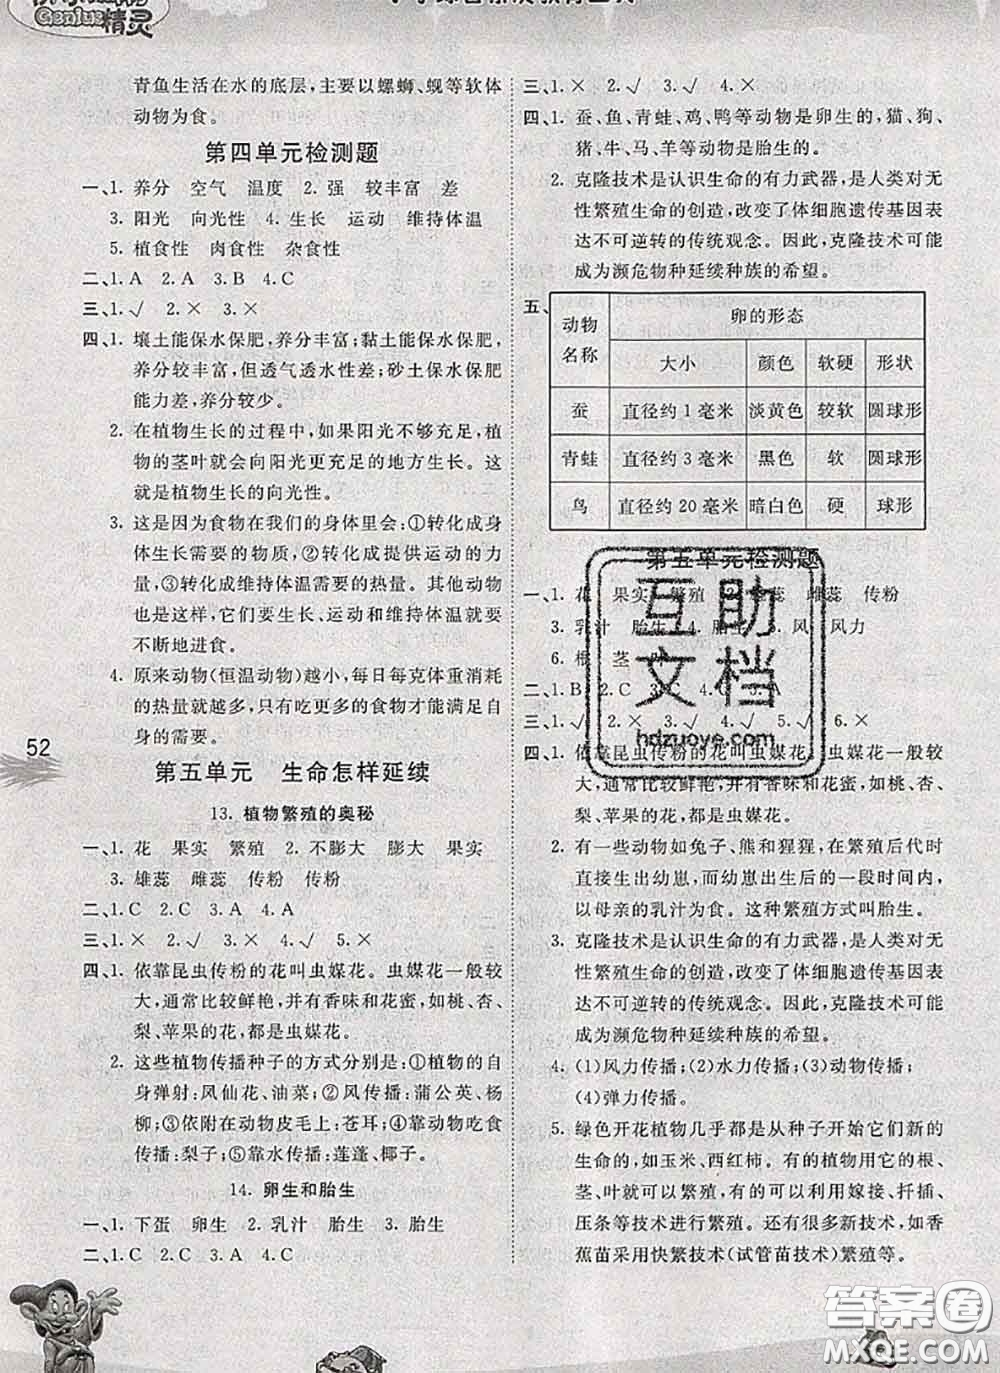 Genius精灵
青鱼生活在水的底层,主要以螺蛳、蚬等软体
动物为食。
第四单元检测题
一、1. 养分 空气 温度 2. 强 较丰富 差
3. 阳光 向光性 4. 生长 运动 维持体温
5. 植食性 肉食性 杂食性
二、1. A 2. A 3. B 4. C
三、1. √ 2. × 3. ×
四、1. 壤土能保水保肥,养分丰富;黏土能保水保肥,
养分较丰富,但透气透水性差;砂土保水保肥
能力差,养分较少。
2. 在植物生长的过程中,如果阳光不够充足,植
物的茎叶就会向阳光更充足的地方生长。这
就是植物生长的向光性。
3. 这是因为食物在我们的身体里会:①转化成身
体生长需要的物质,②转化成供我们运动的能
量,③转化成维持体温需要的热量。其他动物
也是这样,它们要生长、运动和维持体温就要
不断地进食。
4. 原来动物(恒温动物)越小,每天每克体重消耗
的热量就越多,只有吃更多的食物才能满足自
身的需要。
52
第五单元 生命怎样延续
13. 植物繁殖的奥秘
一、1. 花 果实 繁殖 2. 不膨大 膨大 果实
3. 雄蕊 雌蕊 传粉 传粉
二、1. C 2. C 3. A 4. A
三、1. × 2. √ 3. × 4. √ 5. ×
四、1. 依靠昆虫传粉的花叫虫媒花。虫媒花一般较
大,通常比较鲜艳,并有香味和花蜜,如桃、杏、
梨、苹果的花,都是虫媒花。
2. 这些植物传播种子的方式分别是:①植物的自
身弹射:凤仙花、油菜;②风传播:蒲公英、杨
柳;③依附在动物皮毛上:苍耳;④靠动物吃食
传播:梨子;⑤靠水传播:莲蓬、椰子。
14. 卵生和胎生
一、1. 下蛋 卵生 2. 乳汁 胎生 3. 胎生
二、1. C 2. C 3. A 4. C
三、1. × 2. √ 3. √ 4. ×
四、1. 蚕、鱼、青蛙、鸡、鸭等动物是卵生的,猫、狗、
猪、牛、马、羊等动物是胎生的。
2. 克隆技术是认识生命的有力武器,是人类对无
性繁殖生命的创造,改变了体细胞遗传基因表
达不可逆转的传统观念。因此,克隆技术可能
成为濒危物种延续种族的希望。
五、
动物名称 卵的形态
大小 颜色 软硬 形状
蚕 直径约 1 毫米 淡黄色 较软 圆球形
青蛙 直径约 3 毫米 黑色 软 圆球形
鸟 直径约 20 毫米 暗白色 硬 球形
第五单元检测题
一、1. 花 果实 繁殖 雌蕊 传粉
3. 乳汁 胎生 4. 胎生 5. 风 风力
6. 根 茎
二、1. B 2. C 3. C 4. C
三、1. √ 2. × 3. √ 4. √ 5. √ 6. ×
四、1. 依靠昆虫传粉的花叫虫媒花。虫媒花一般较
大,通常比较鲜艳,并有香味和花蜜,如桃、杏、
梨、苹果的花,都是虫媒花。
2. 有一些动物如兔子、熊和猩猩,在繁殖后代时
直接生出幼崽,而幼崽出生后的一段时间内,
以母亲的乳汁为食。这种繁殖方式叫胎生。
3. 克隆技术是认识生命的有力武器,是人类对无
性繁殖生命的创造,改变了体细胞遗传基因表
达不可逆转的传统观念。因此,克隆技术可能
成为濒危物种延续种族的希望。
4. (1)风力传播;(2)水力传播;(3)动物传播;
(4)弹力传播。
5. 绿色开花植物几乎都是从种子开始它们新的
生命的,如玉米、西红柿。有的植物用它们的根、
茎、叶就可以繁殖,有的可以利用嫁接、扦插、
压条等技术进行繁殖。还有许多新技术,如香
蕉苗采用快繁技术(试管苗技术)繁殖等。
互助
文档
hdzuoye.com
答案圈
MXQE.COM